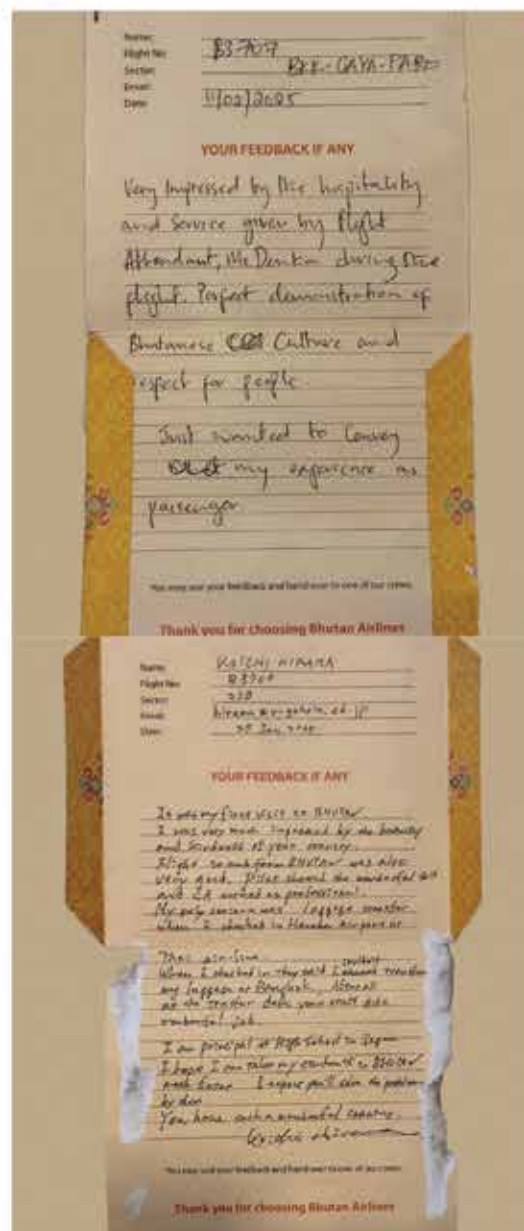 Name:
Flight No: B3-707
Sector: BKK-GAYA-PARO
Email:
Date: 11/02/2025
YOUR FEEDBACK IF ANY
Very Impressed by the hospitality
and Service given by flight
Attendant, during the
flight. Perfect demonstration of
Bhutanese Culture and
respect for people
Just wanted to Convey
my experience as
passenger
You may use your feedback and hand over to one of our crews.
Thank you for choosing Bhutan Airlines
Name: KOICHI HIRAMA
Flight No:
Sector:
Email:
Date: Jan
YOUR FEEDBACK IF ANY
It was my first visit to BHUTAN
I was very much impressed by the beauty
and of your country.
Flight to and from BHUTAN was also
very good. Pilot showed the wonderful skill
and CA worked as professional.
My only concern was luggage transfer
when I checked in Haneda Airport
Thai airline
When I checked in they said I couldn't transfer
my luggage at Bangkok.
at the transfer desk your staff did
wonderful job.
I am principal of High School in Japan
I hope I can take my students to BHUTAN
the problem
by then
You have such a wonderful country.
You may use your feedback and hand over to one of our crews.
Thank you for choosing Bhutan Airlines